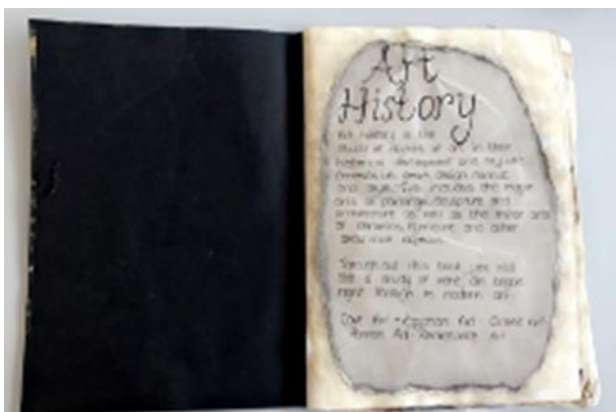 Art
History
Art history is the
study of objects of art in their
historical development and stylistic
design, format
and style. This includes the major
arts of painting, sculpture and
architecture as well as the minor arts
of ceramics, furniture and other
decorative objects.
Throughout this book you will
see a study of were art began
right through to modern art.
Cave Art - Egyptian Art - Greek Art
Roman Art - Renaissance Art